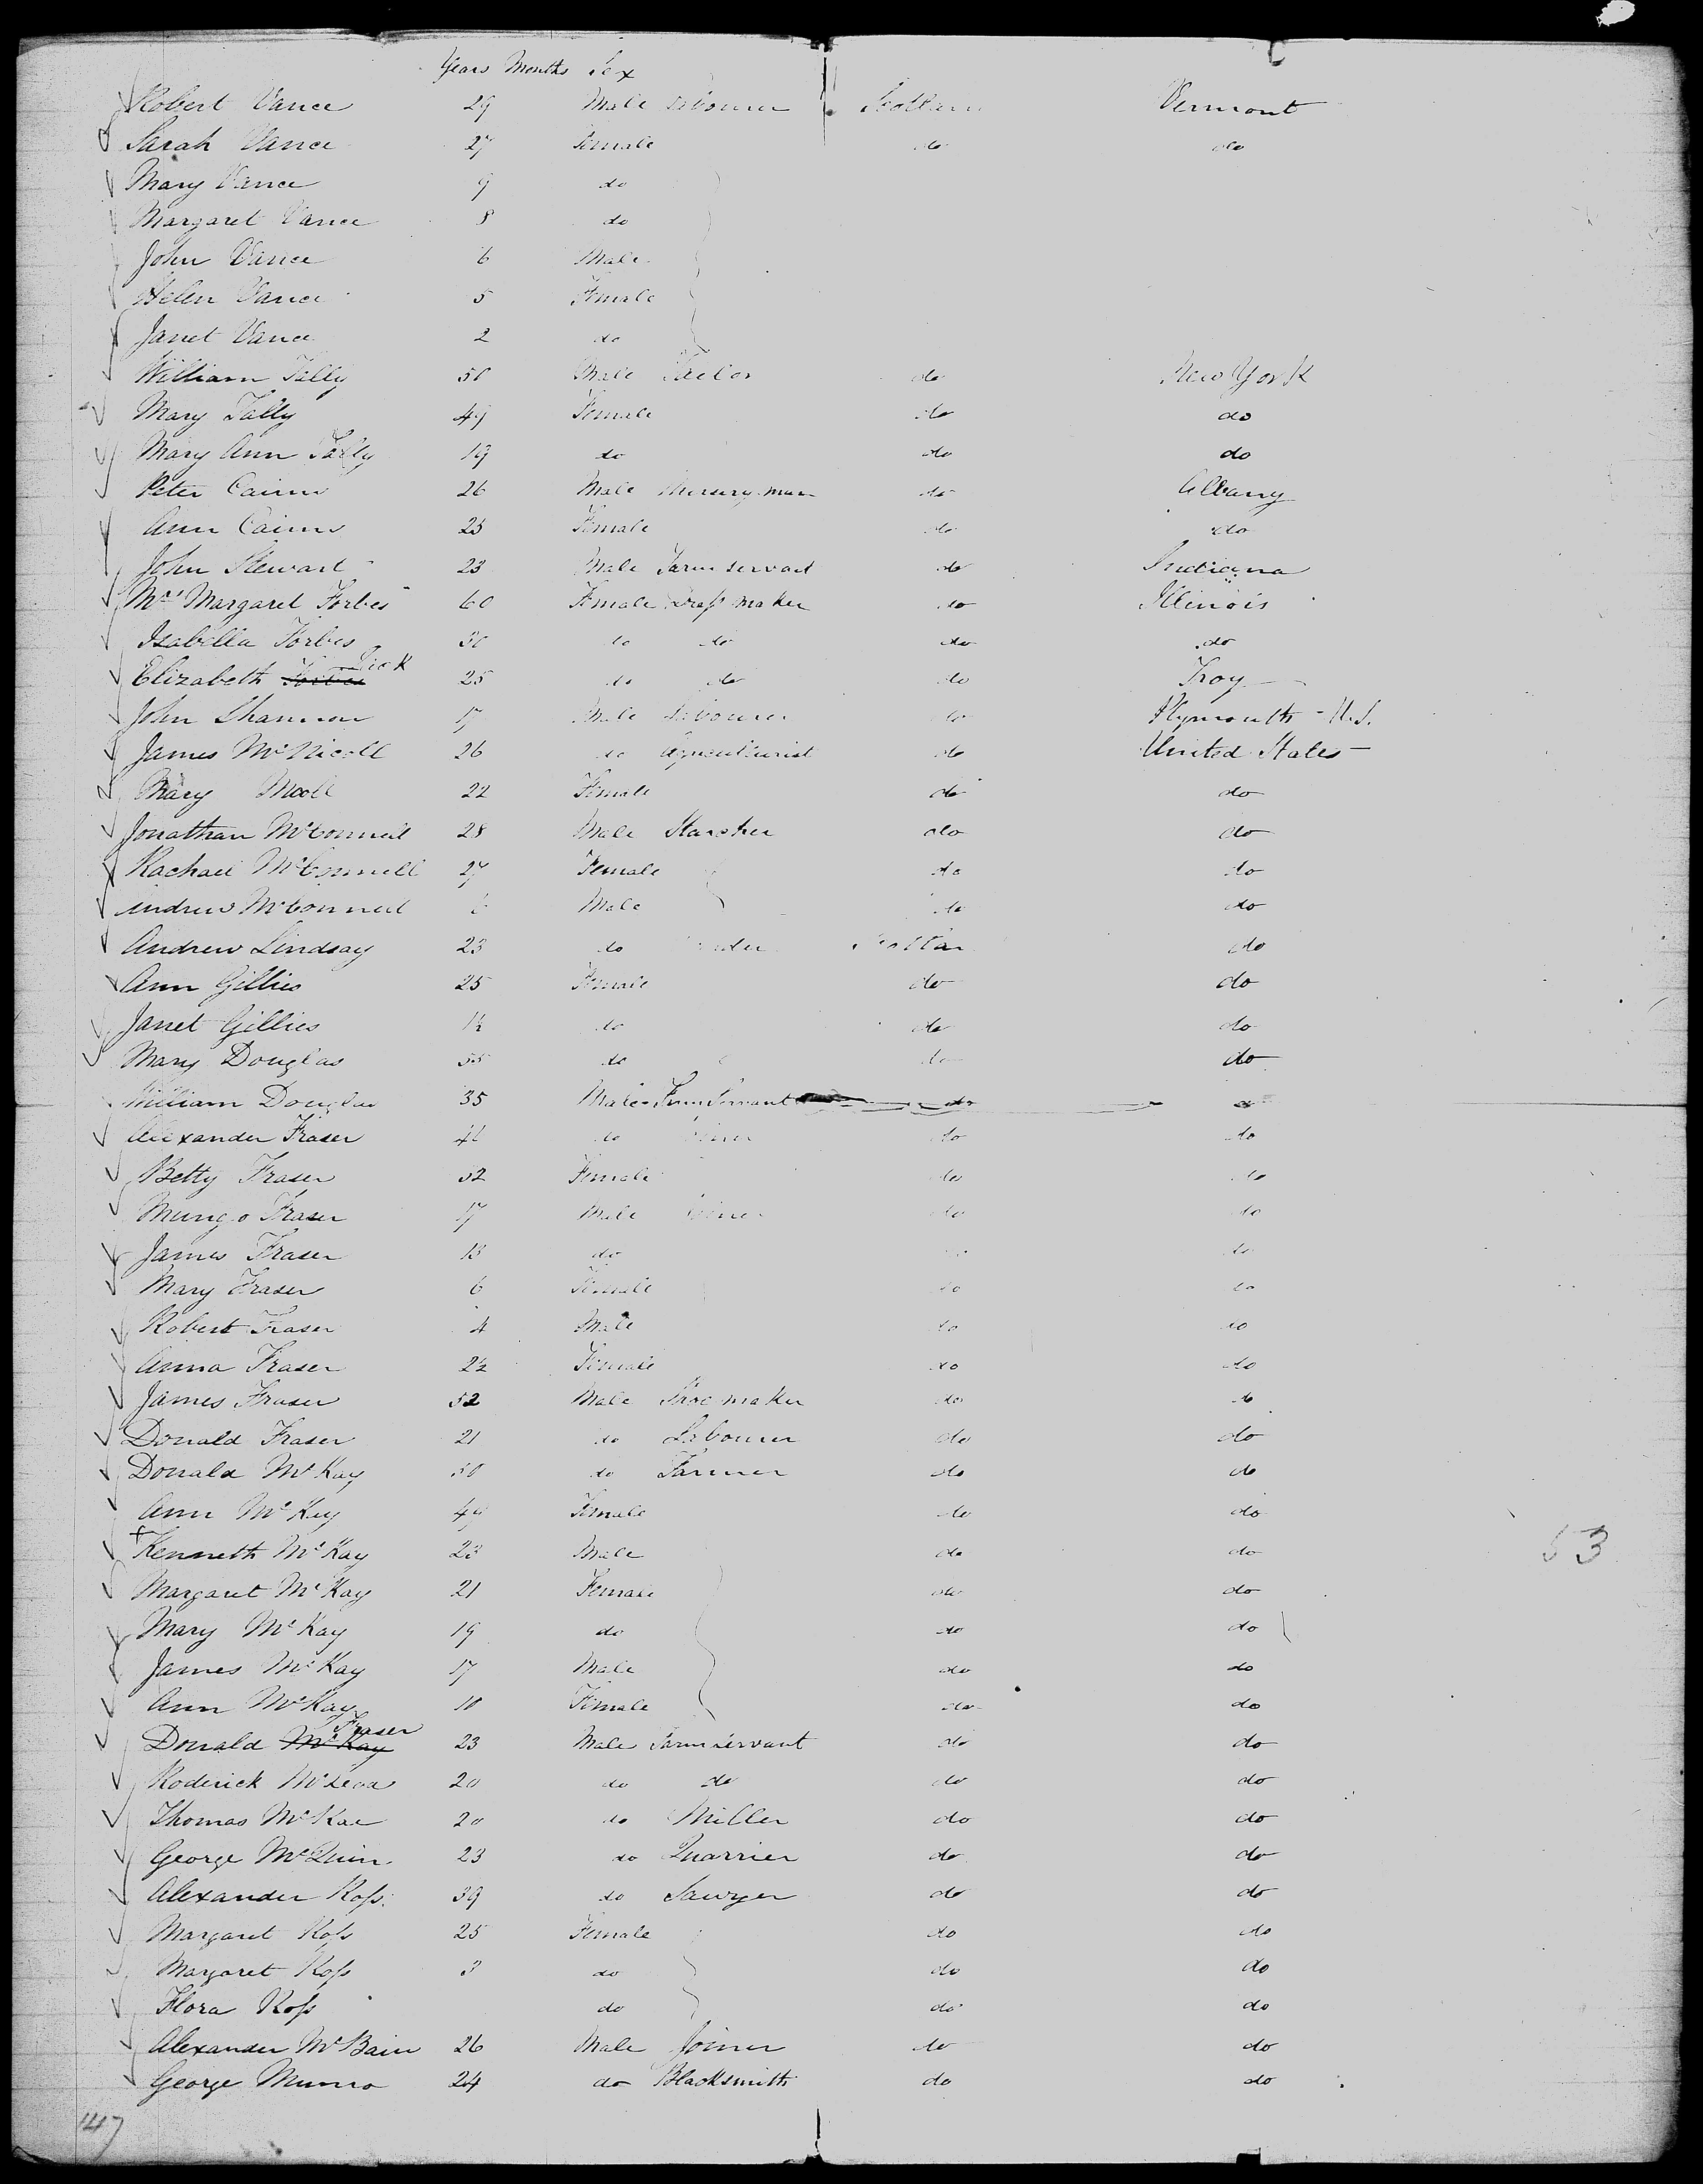 Years Months Sex
Robert Vance 29 Male Labourer Scotland Vermont
Sarah Vance 27 Female do do
Mary Vance 9 do
Margaret Vance 8 do
John Vance 6 Male
Helen Vance 5 Female
Janet Vance 2 do
William Tally 50 Male Tailor do New York
Mary Tally 49 Female do do
Mary Ann Tally 19 do do do
Peter Cairns 26 Male Nursery man do Albany
Ann Cairns 25 Female do do
John Stewart 23 Male Farm servant do Indiana
Mrs Margaret Forbes 60 Female Dress maker do Illinois
Isabella Forbes 30 do do do do
Elizabeth Forbes Dick 25 do do do Troy
John Shannon 17 Male Labourer do Plymouth - U.S.
James McNicoll 26 do Agriculturist do United States
Mary 22 Female do do
Jonathan McConnell 28 Male Starcher do do
Rachael McConnell 27 Female do do
Andrew McConnell Male do do
Andrew Lindsay 23 do do
Ann Gillies 25 Female do do
Janet Gillies do do do
Mary Douglas 55 do do do
William Douglas 35 Male Farm Servant do do
Alexander Fraser do do do
Betty Fraser 52 Female do do
Mungo Fraser 17 Male Joiner do do
James Fraser 13 do do
Mary Fraser 6 Female do do
Robert Fraser 4 Male do do
Anna Fraser Female do do
James Fraser 52 Male Shoe maker do do
Donald Fraser 21 do Labourer do do
Donald McKay 50 do Farmer do do
Ann McKay 49 Female do do
+ Kenneth McKay 23 Male do do 53
Margaret McKay 21 Female do do
Mary McKay 19 do do do
James McKay 17 Male do do
Ann McKay 10 Female do do
Donald McKay Fraser 23 Male Farm servant do do
Roderick McLeod 20 do do do do
Thomas McRae 20 do Miller do do
George McQuin 23 do Quarrier do do
Alexander Ross 39 do Sawyer do do
Margaret Ross 25 Female do do
Margaret Ross 3 do do do
Flora Ross do do do
Alexander McBain 26 Male Joiner do do
George Munro 24 do Blacksmith do do
147